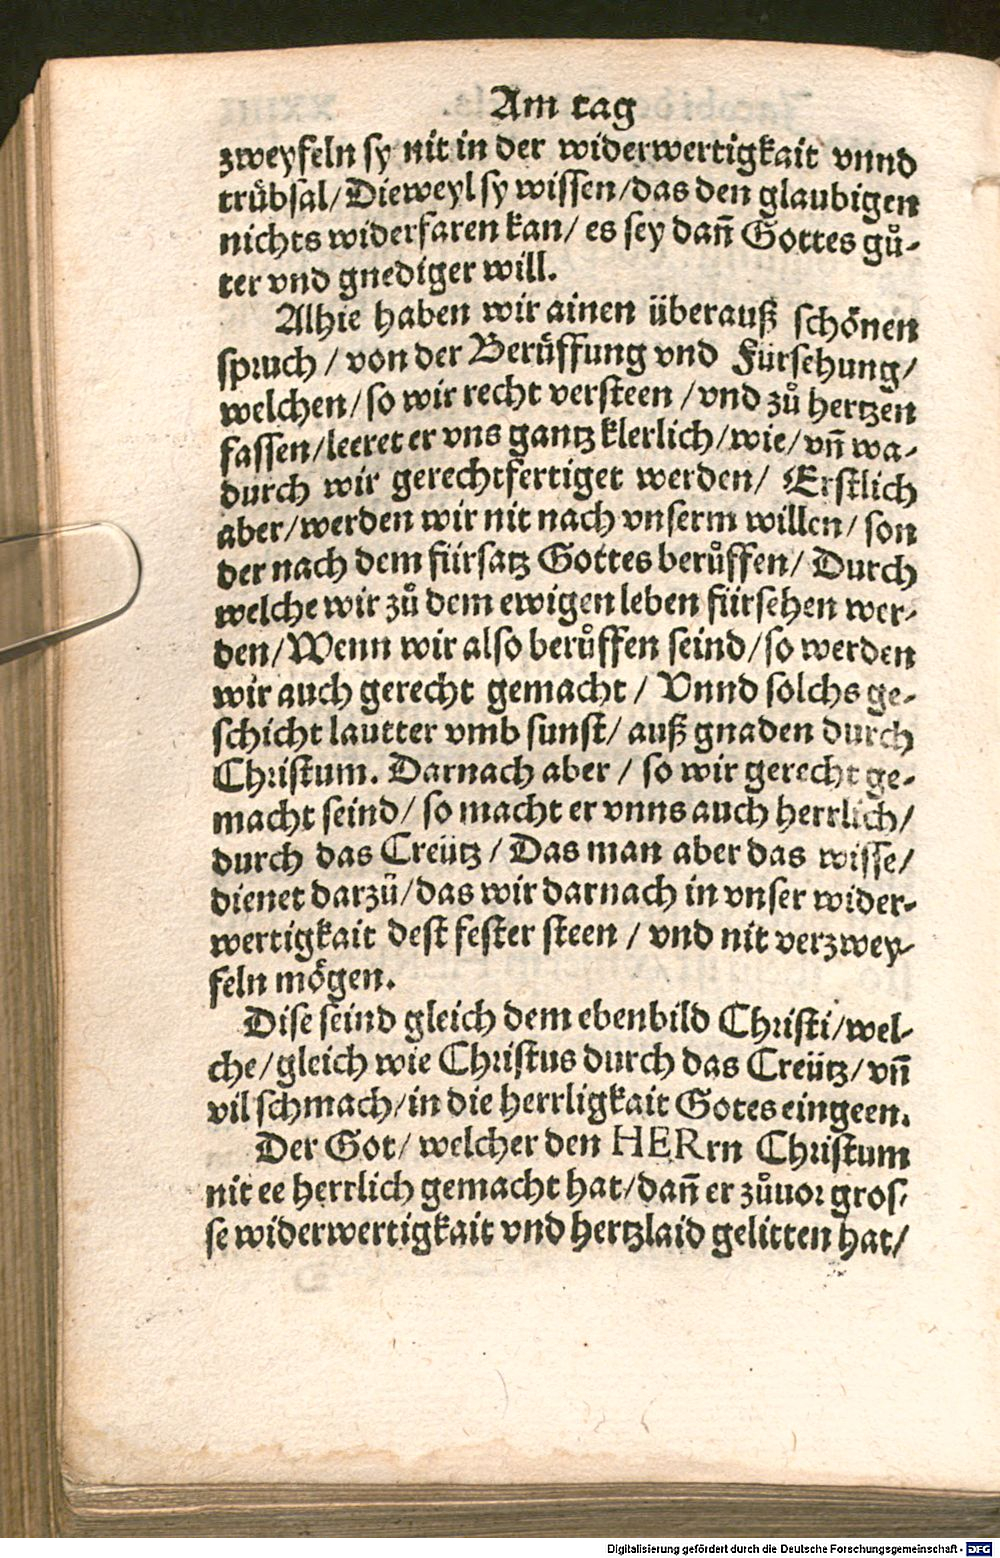 Am tag
zweyfeln sy nit in der widerwertigkait vnnd
truͤbsal/Dieweyl sy wissen/das den glaubigen
nichts widerfaren kan/ es sey dañ Gottes guͤ-
ter vnd gnediger will.
Alhie haben wir ainen überauß schoͤnen
spruch / von der Beruͤffung vnd Fürsehung/
welchen/so wir recht versteen /vnd zuͦ hertzen
fassen/leeret er vns gantz klerlich/wie/vñ wa-
durch wir gerechtfertiget werden/ Erstlich
aber/werden wir nit nach vnserm willen/ son
der nach dem fürsatz Gottes beruͤffen/ Durch
welche wir zuͦ dem ewigen leben fürsehen wer-
den/Wenn wir also beruͤffen seind/so werden
wir auch gerecht gemacht / Vnnd solchs ge-
schicht lautter vmb sunst/ auß gnaden durch
Christum. Darnach aber / so wir gerecht ge-
macht seind/ so macht er vnns auch herrlich/
durch das Creütz / Das man aber das wisse/
dienet darzuͦ/das wir darnach in vnser wider-
wertigkait dest fester steen / vnd nit verzwey-
feln moͤgen.
Dise seind gleich dem ebenbild Christi/wel-
che/gleich wie Christus durch das Creütz/vñ
vil schmach/in die herrligkait Gotes eingeen.
Der Got/ welcher den HERrn Christum
nit ee herrlich gemacht hat/dañ er zuͦuor gros-
se widerwertigkait vnd hertzlaid gelitten hat/
Digitalisierung gefördert durch die Deutsche Forschungsgemeinschaft - DFG